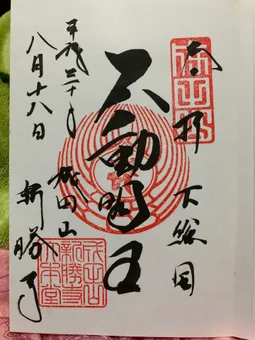 奉拝 下総国
不動明王
平成三十年
成田山
八月十八日
新勝寺
成田山
新勝寺
大本堂